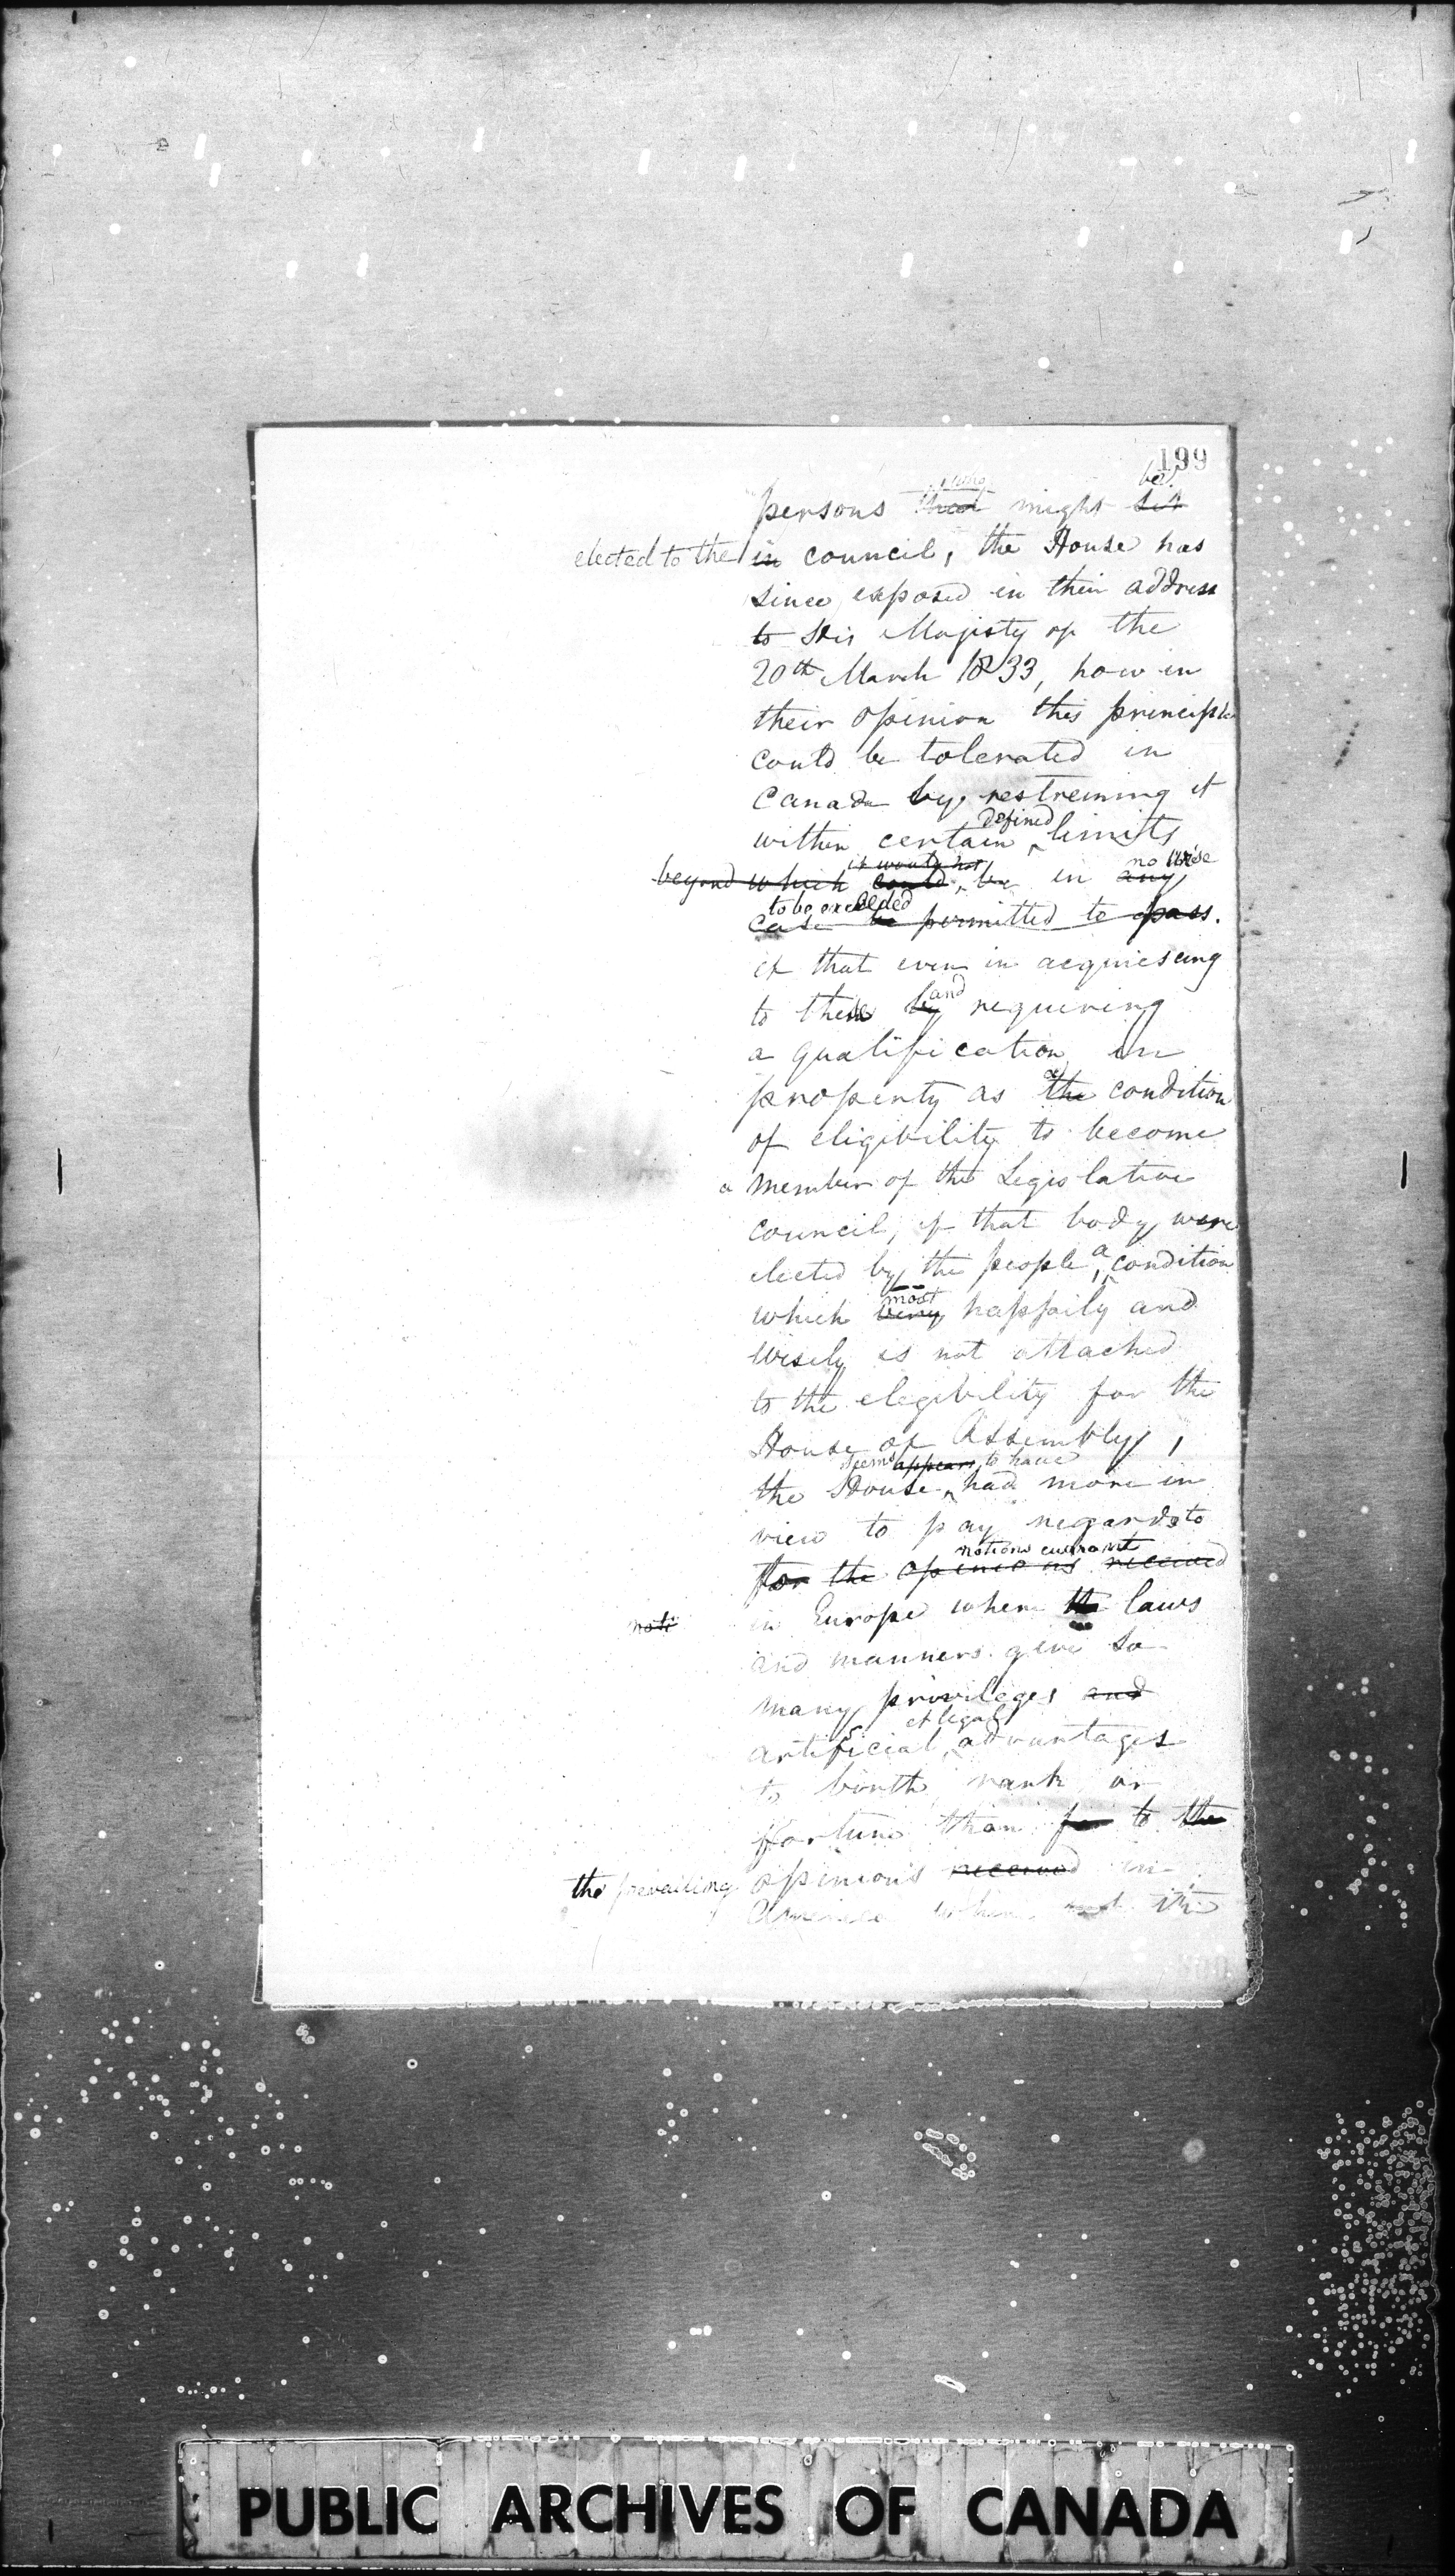 199
who be
persons that might sit
elected to the in council, the House has
since exposed in their address
to His Majisty of the
20th March 1833, how in
their opinion this principle
could be tolerated in
Canada by restreining it
defined
within certain limits
it would not no wise
beyond which could be in any
to be exceeded
case be permitted to pass.
it that even in acquiescing
and
to these by requiring
a qualification in
a
property as the condition
of eligibility to become
a member of the Legislative
council, if that body were
a
elected by the people condition
most
which very happily and
wisely is not attached
to the elegibility for the
House of Assembly,
seems appears to have
the House had more in
view to pay regards to
notions currant
for the opinions received
noti in Europe where the laws
and manners give so
many privileges and
et legal
artificial advantages
to birth rank or
fortune than for to the
the prevailing opinions received in
America where the
PUBLIC ARCHIVES OF CANADA